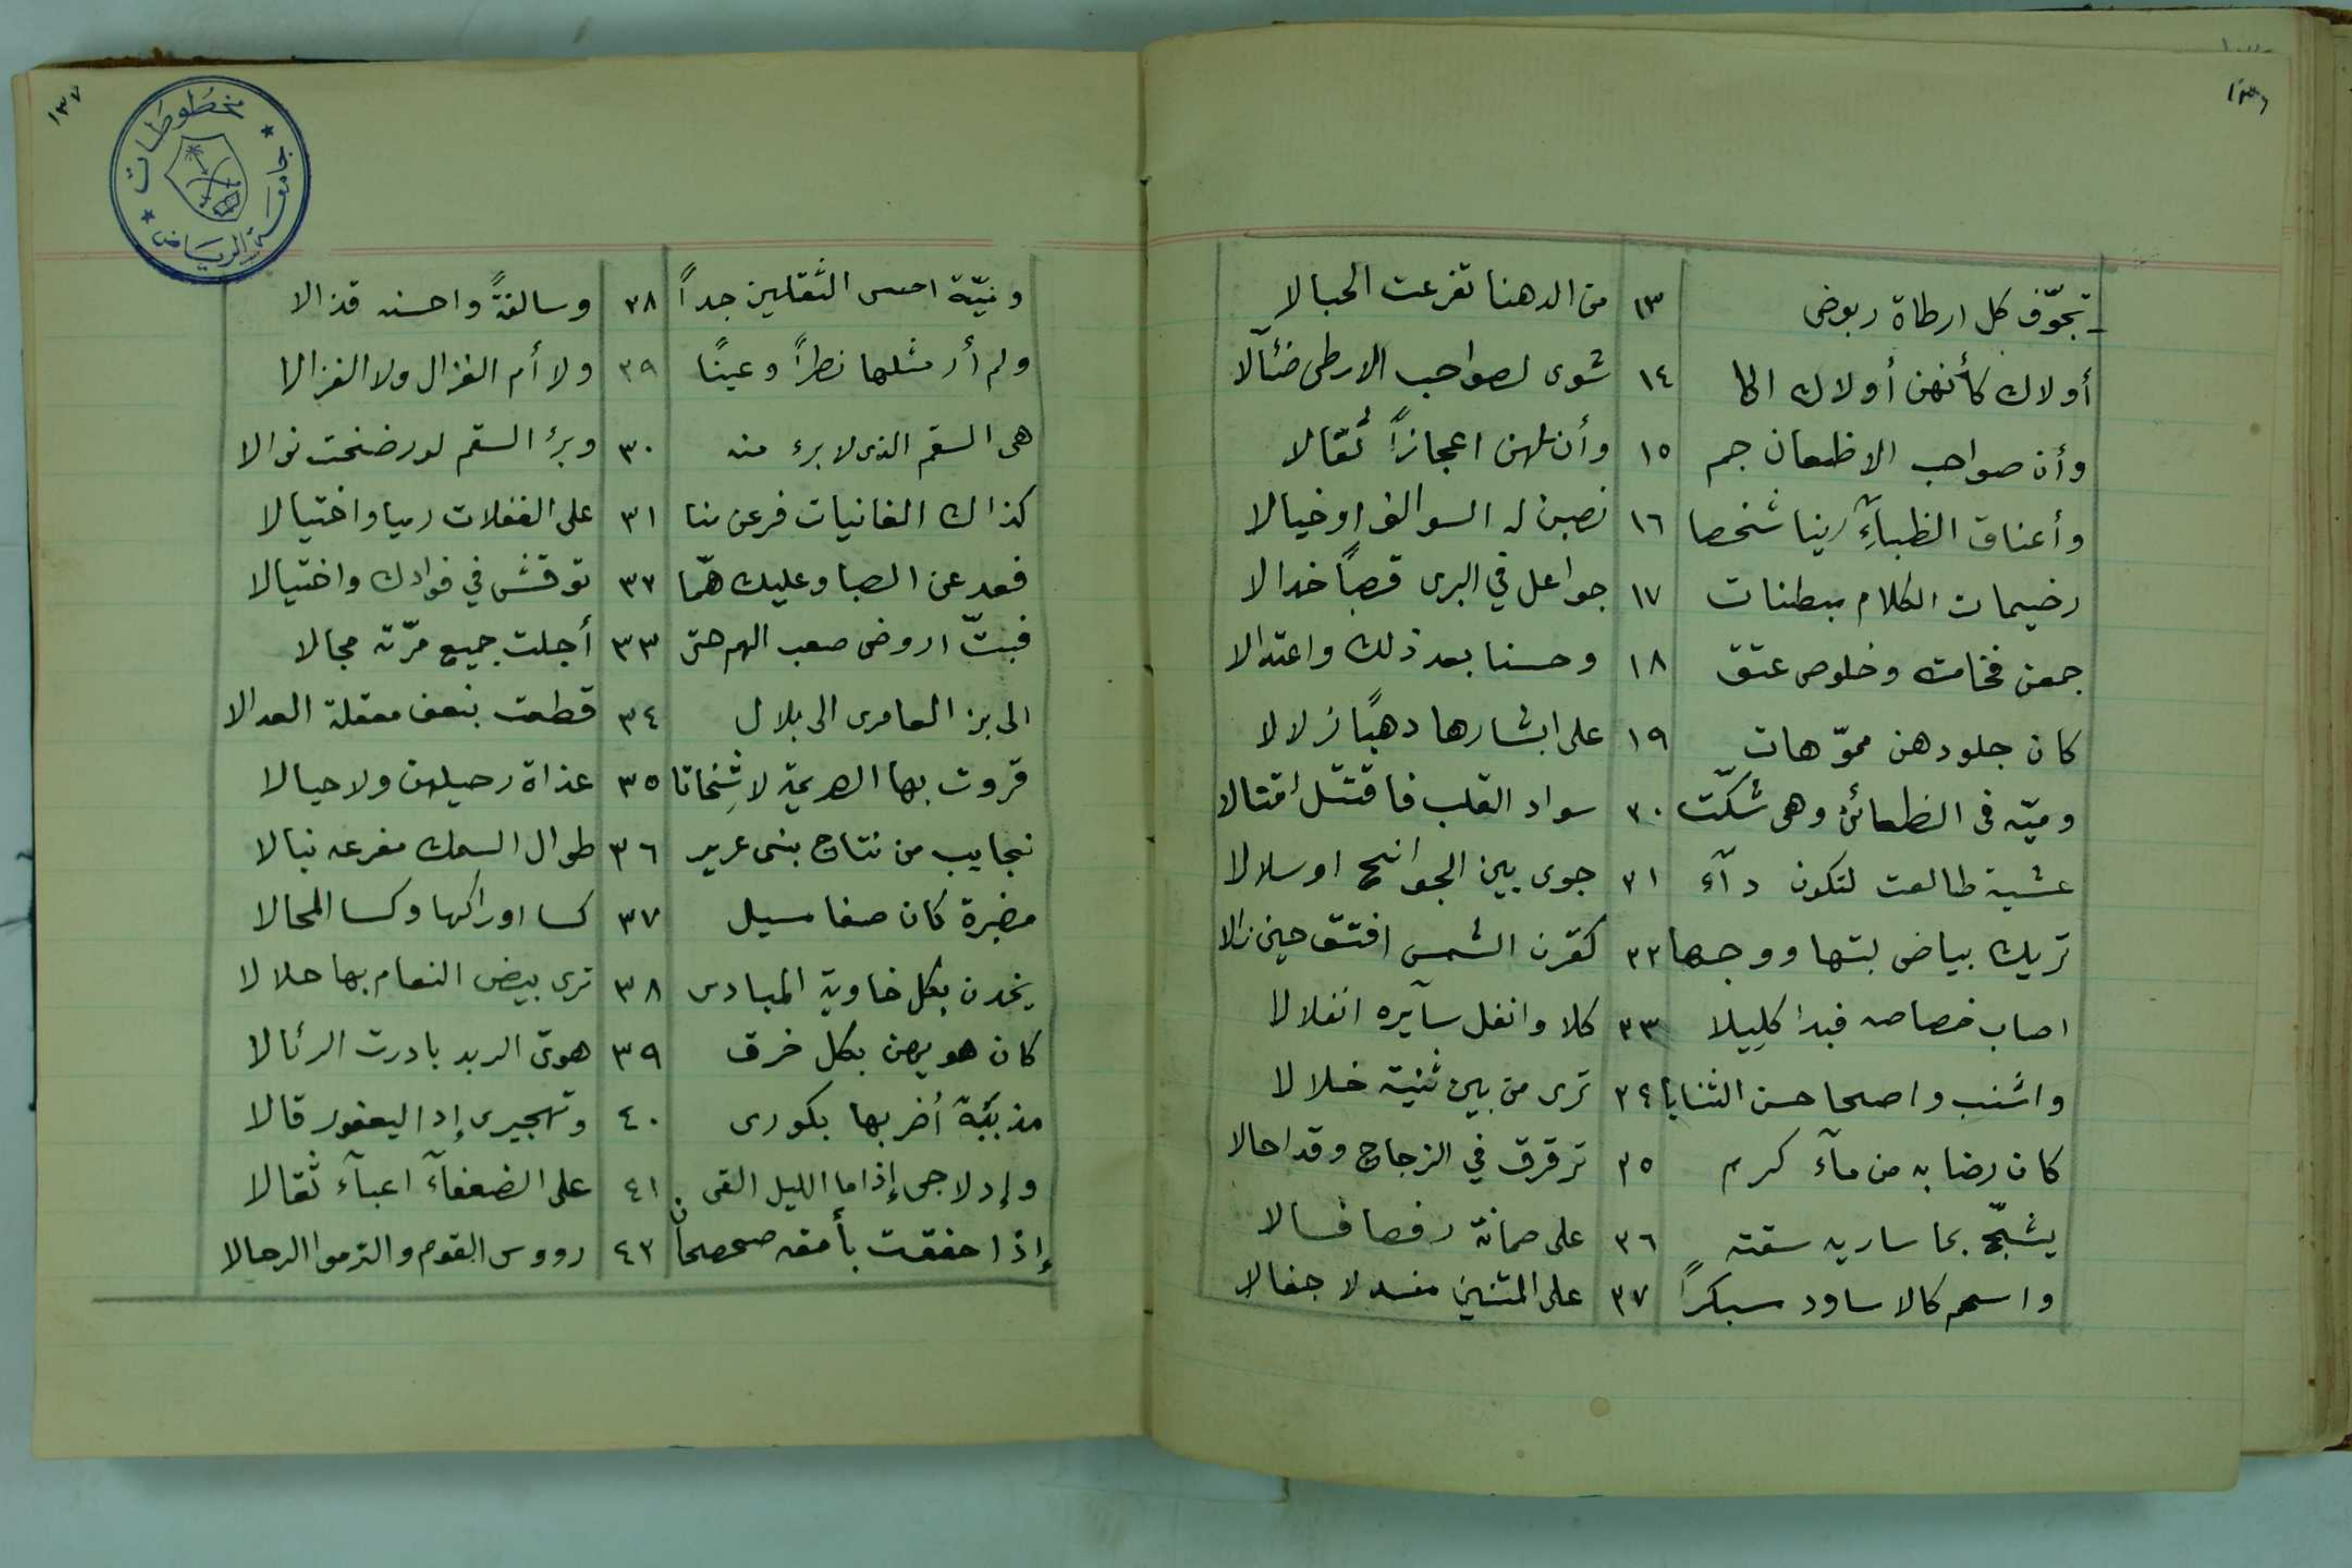 ١٣٦
تجوّف كل ارطاة ربوض ١٣ من الدهنا تفرعت الحبالا
أولاك كأنهن أولاك الا ١٤ شوى لصواحب الارطى ضئآلا
وأن صواحب الاظعان جم ١٥ وأن لهن اعجازاً ثقالا
وأعناق الظبآءِ رينا شخصا ١٦ نصبن له السوالف اوخيالا
رخيمات الكلام مبطنات ١٧ جواعل في البرى قصباً خدالا
جمعن فخامة وخلوص عتق ١٨ وحسنا بعد ذلك واعتدالا
كان جلودهن مموّهات ١٩ على ابشارها دهباً زلالا
وميّه فى الظعائن وهى شكّت ٢٠ سواد القلب فاقتتل اقتتالا
عشية طالعت لتكون دآءً ٢١ جوى بين الجوانح اوسلالا
تريك بياض لبتها ووجها ٢٢ كقرن الشمس افتتق حين زالا
اصاب خصاصه فبدا كليلا ٢٣ كلا وانغل سآيره انغلالا
واشنب واضحا حسن الثنايا ٢٤ ترى من بين ثنية خلالا
كان رضابه من مآء كرم ٢٥ ترقرق في الزجاج وقد احالا
يشجّ بما ساريه سقته ٢٦ على صمانة رصفا فسالا
واسحم كالاساود مسبكراً ٢٧ على المتنين منسدلا جفالا
١٣٧
مخطوطات
جامعة الرياض
وميّة احسن الثقلين جداً ٢٨ وسالفةً واحسنه قذالا
ولم أر مثلها نظراً وعيناً ٢٩ ولا أم الغزال ولا الغزالا
هى السقم الذى لا برء منه ٣٠ وبرؤ السقم لو رضخت نوالا
كذاك الغانيات فرعن منا ٣١ على الغفلات رميا واختيالا
فعد عن الصبا وعليك همّا ٣٢ توقش في فوادك واختيالا
فبتّ اروض صعب الهم حتى ٣٣ أجلت جميع مرّته مجالا
الى بن العامرى الى بلال ٣٤ قطعت بنعف معقلة العدالا
قروت بها الصريمة لا شِخاتا ٣٥ غداة رحيلهن ولا حيالا
نجايب من نتاج بنى عرير ٣٦ طوال السمك مفرعه نبالا
مضبرة كان صفا مسيل ٣٧ كسا اوراكها وكسا المحالا
يخدن بكل خاوية المبادى ٣٨ ترى بيض النعام بها حلالا
كان هويهن بكل خرق ٣٩ هوىّ الربد بادرت الرئالا
مذبئبة أضر بها بكورى ٤٠ وتهجيرى إدا اليعفور قالا
وإدلاجى إذا ما الليل القى ٤١ على الضعفآء اعبآء ثقالا
إذا خفقت بأمقه صحصحان ٤٢ رووس القوم والتزموا الرحالا